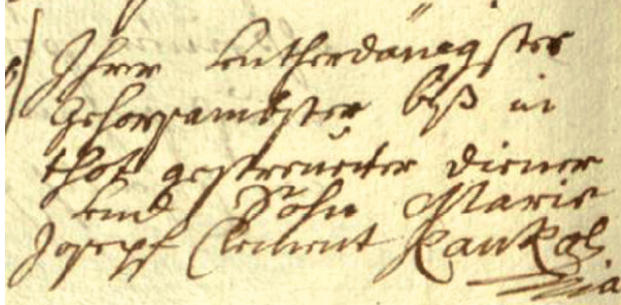 Ihrer Entherdänigster
gehorsambster biß in
thot gestreueiter diener
und Sohn Marie
Joseph Clement Kaukol